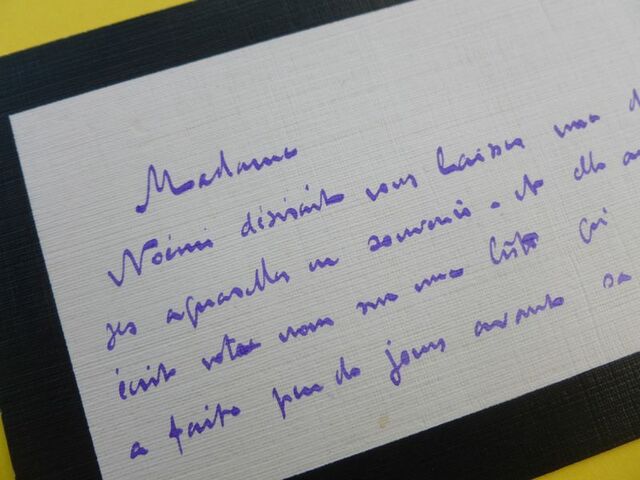 Madame
Noémi désirait vous laisser une d
ses aquarelles en souvenir. et elle a
écrit votre nom sur une liste qu
a faite peu de jours avant sa